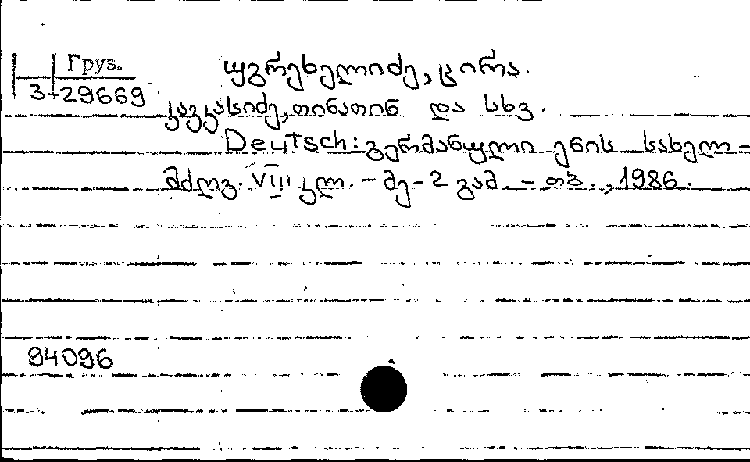 Груз.
3-29669
ყგრეხელიძე, ცირა.
კავკასიძე, თინათინ და სხვ.
Deutsch: გერმანული ენის სახელ-
მძღვ. VIII კლ. - მე-2 გამ. - თბ., 1986.
94096